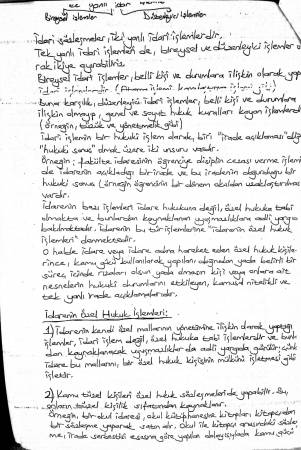 Bireysel işlemler Düzenleyici işlemler
İdari sözleşmeler, iki yanlı idari işlemlerdir.
Tek yanlı idari işlemleri de, bireysel ve düzenleyici işlemler o
rak ikiye ayırabiliriz.
Bireysel idari işlemler, belli kişi ve durumlara ilişkin olarak yap
idari işlemlerdir
Buna karşılık, düzenleyici idari işlemler, belli kişi ve durumlara
ilişkin olmayıp, genel ve soyut hukuk kuralları koyan işlemlerdi
(örneğin, tüzük ve yönetmelik gibi)
İdari işlemin bir hukuki işlem olarak, biri "irade açıklaması" diğ
"hukuki sonuç" olmak üzere iki unsuru vardır.
Örneğin; fakülte idaresinin öğrenciye disiplin cezası verme işlemi
de idarenin açıkladığı bir irade ve bu iradenin doğurduğu bir
hukuki sonuç (örneğin öğrencinin bir dönem okuldan uzaklaştırılması
vardır.
İdarenin bazı işlemleri idare hukukuna değil, özel hukuka tabi
olmakta ve bunlardan kaynaklanan uyuşmazlıklara adli yargı
bakmaktadır. İdarenin bu tür işlemlerine "idarenin özel hukuk
işlemleri" denmektedir.
O halde idare veya idare adına hareket eden özel hukuk kişile-
rince, kamu gücü kullanılarak yapılan doğrudan yada belirli bir
süreç içinde rızaları olsun yada olmasın kişi veya onlara ait
nesnelerin hukuki durumlarını etkileyen, kamusal nitelikli ve
tek yanlı irade açıklamalarıdır.
İdarenin Özel Hukuk İşlemleri:
1) İdarenin kendi özel mallarının yönetimine ilişkin olarak yaptığı
işlemler, idari işlem değil, özel hukuka tabi işlemlerdir ve bun
dan kaynaklanacak uyuşmazlıklar da adli yargıda görülür; çünkü
idare bu mallarını, bir özel hukuk kişisinin mülkünü işletmesi gibi
işletir.
2) Kamu tüzel kişileri özel hukuk sözleşmeleri de yapabilir. Bu,
onların tüzel kişilik sıfatından kaynaklanır.
Örneğin, bir okul idaresi, okul kütüphanesine kitapları kitapçıdan
bir sözleşme yaparak satın alır. Okul ile kitapçı arasındaki sözleş
me, irade serbestisi esasına göre yapılan dolayısıyla kamu gücü